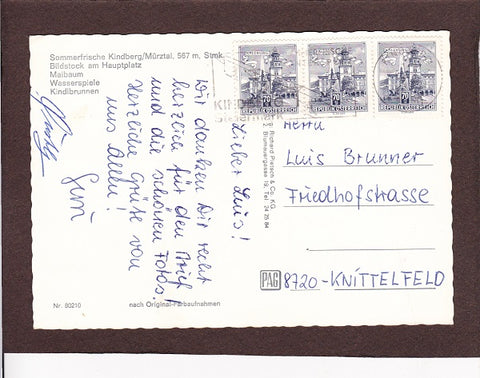 Sommerfrische Kindberg/Mürztal, 567 m, Stmk.
Bildstock am Hauptplatz
Maibaum
Wasserspiele
Kindibrunnen
Lieber Luis!
Wir danken Dir recht
herzlich für den Brief
und die schönen Fotos.
Herzliche Grüße von
uns allen!
REPUBLIK ÖSTERREICH
REPUBLIK ÖSTERREICH
REPUBLIK ÖSTERREICH
Steiermark
HERRN
Luis Brunner
Friedhofstrasse
8720-KNITTELFELD
PAG
Richard Pietsch & Co. KG.
Nr. 80210
nach Original-Farbaufnahmen